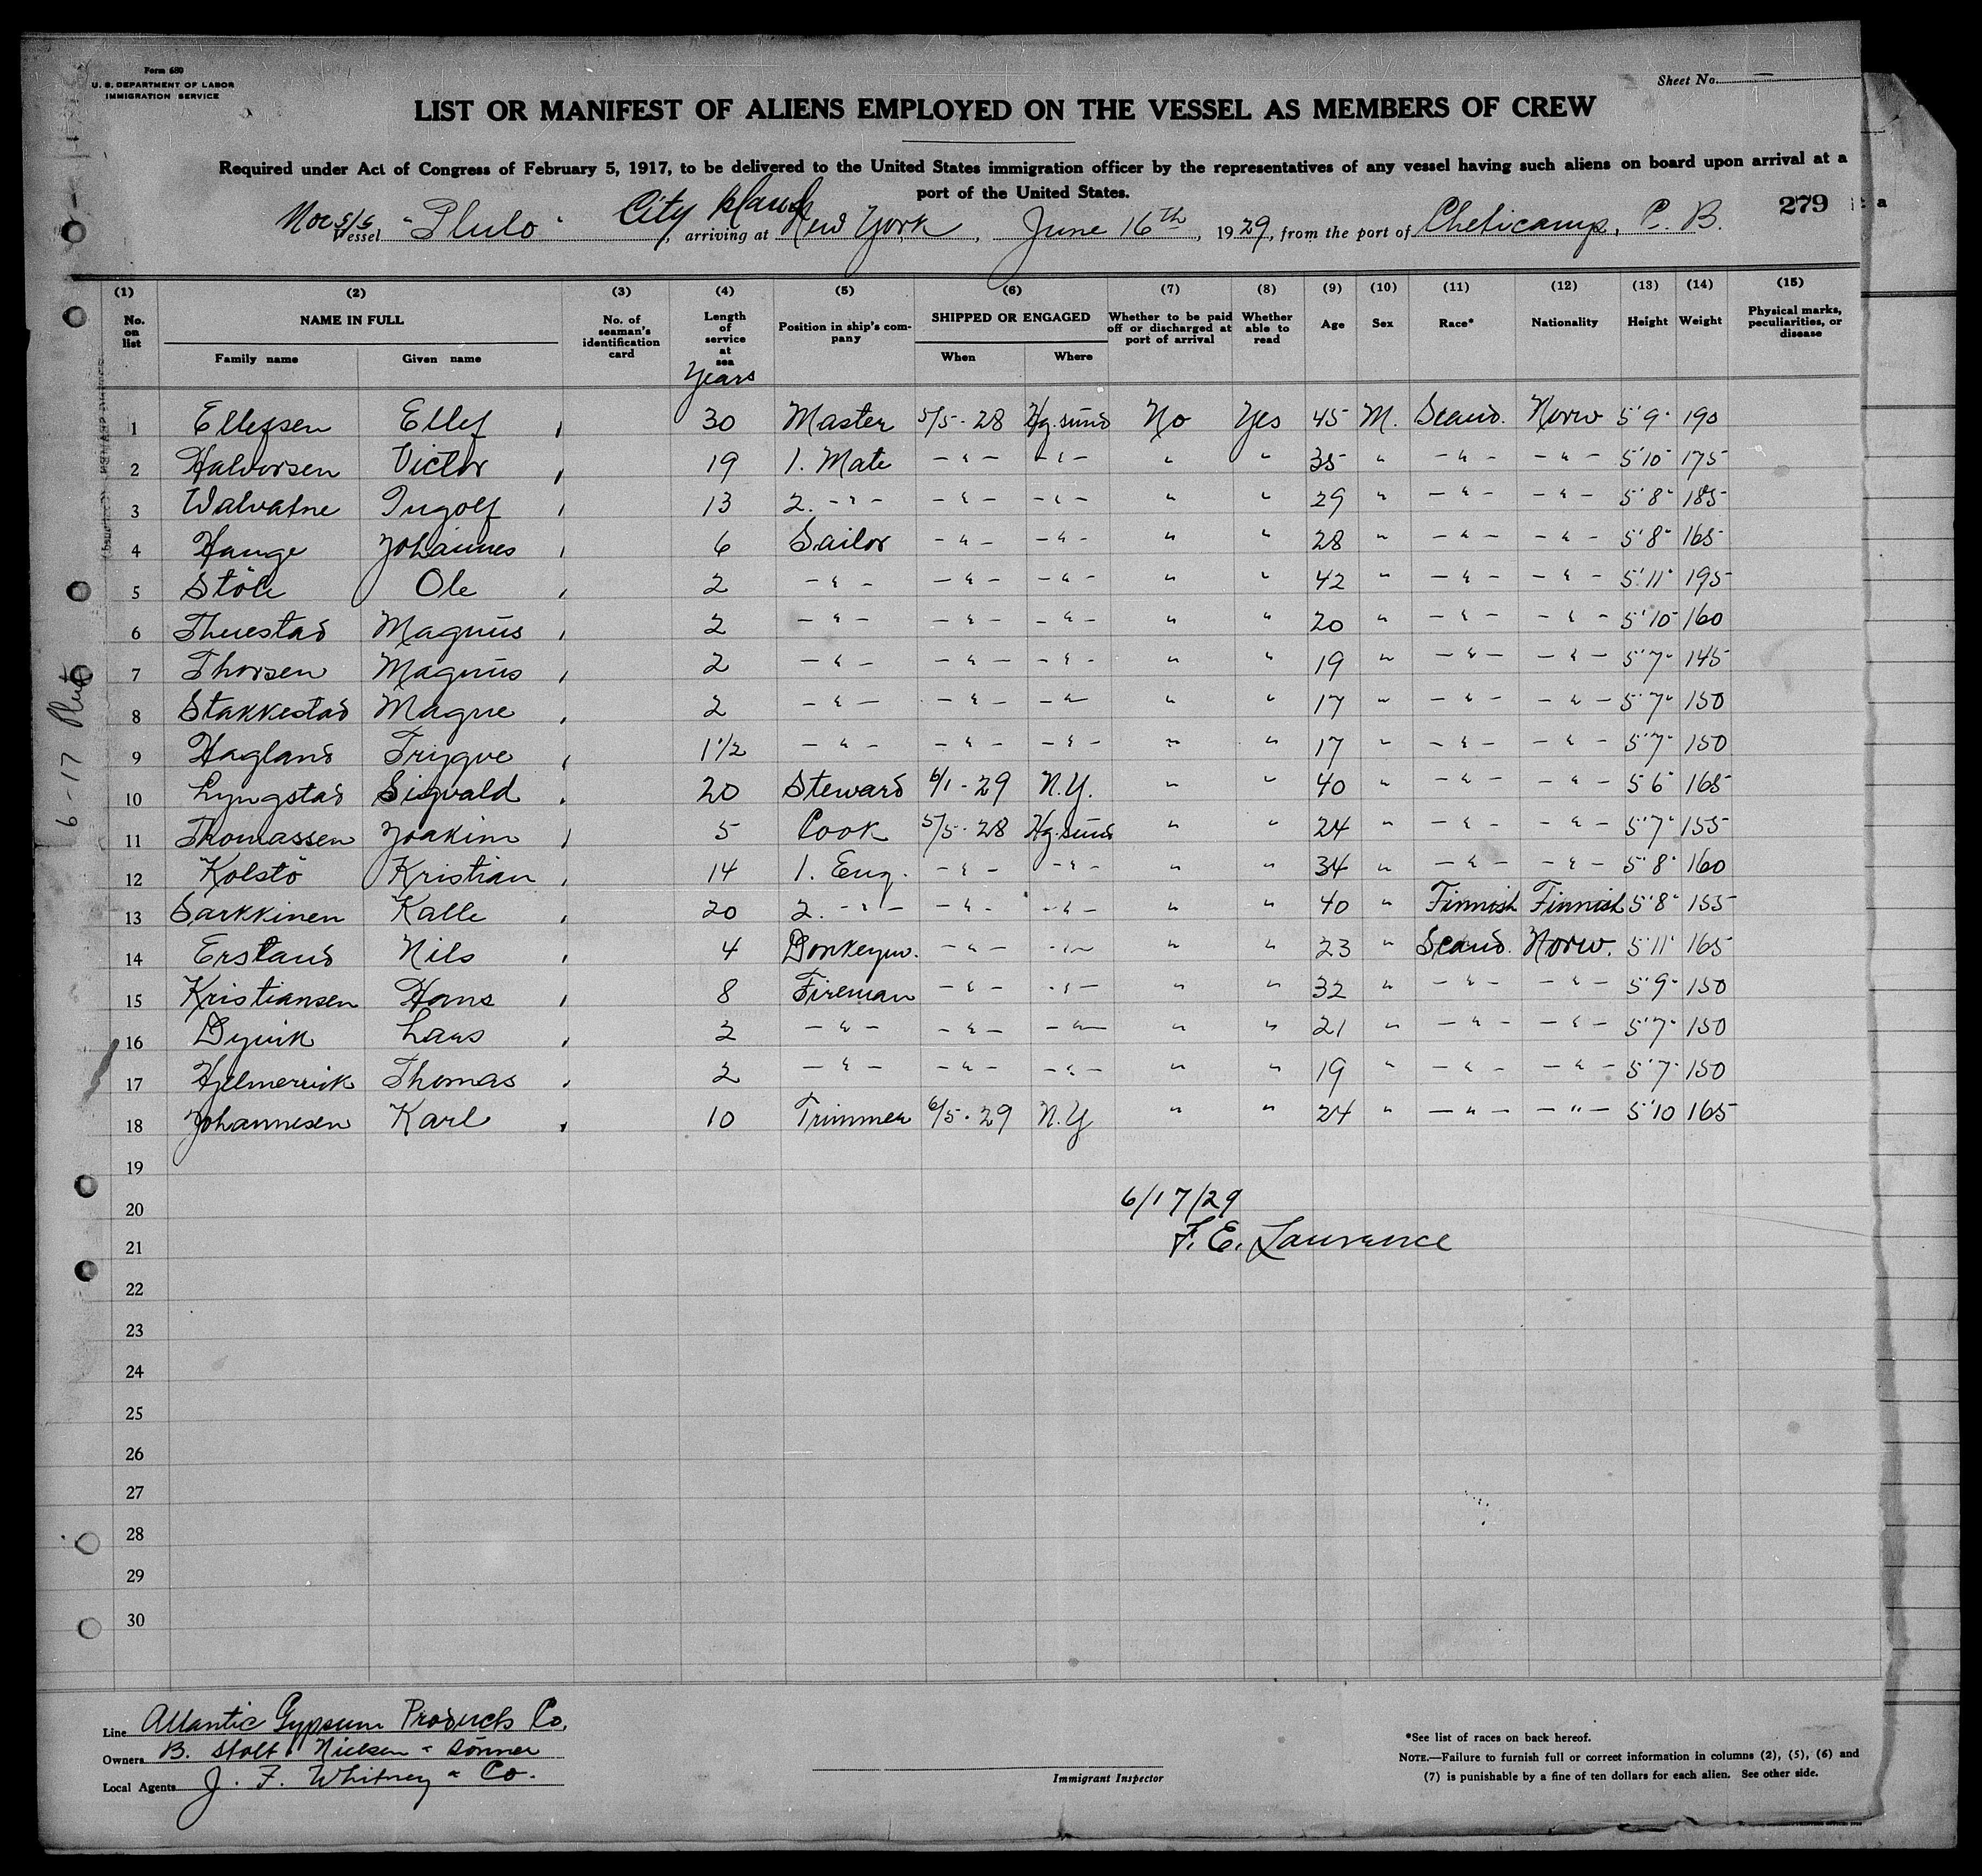 Form 680
U. S. DEPARTMENT OF LABOR
IMMIGRATION SERVICE
Sheet No. —
LIST OR MANIFEST OF ALIENS EMPLOYED ON THE VESSEL AS MEMBERS OF CREW
Required under Act of Congress of February 5, 1917, to be delivered to the United States immigration officer by the representatives of any vessel having such aliens on board upon arrival at a
port of the United States.
279
City Island
Nor S/S Vessel "Pluto", arriving at New York, June 16th, 1929, from the port of Cheticamp, C. B.
(1) (2) (3) (4) (5) (6) (7) (8) (9) (10) (11) (12) (13) (14) (15)
No. on list NAME IN FULL Family name Given name No. of seaman's identification card Length of service at sea Years Position in ship's company SHIPPED OR ENGAGED When Where Whether to be paid off or discharged at port of arrival Whether able to read Age Sex Race* Nationality Height Weight Physical marks, peculiarities, or disease
1 Ellefsen Ellef 30 Master 5/5-28 Hg.sund No Yes 45 M. Scand. Norw 5'9" 190
2 Halvorsen Victor 19 1. Mate -"- -"- " " 35 " -"- -"- 5'10" 175
3 Walvatne Ingolf 13 2. -"- -"- -"- " " 29 " -"- -"- 5'8" 185
4 Hauge Johannes 6 Sailor -"- -"- " " 28 " -"- -"- 5'8" 165
5 Ole 2 -"- -"- -"- " " 42 " -"- -"- 5'11" 195
6 Magnus 2 -"- -"- -"- " " 20 " -"- -"- 5'10" 160
7 Thorsen Magnus 2 -"- -"- -"- " " 19 " -"- -"- 5'7" 145
8 Stakkestad Magne 2 -"- -"- -"- " " 17 " -"- -"- 5'7" 150
9 Hagland Trygve 1 1/2 -"- -"- -"- " " 17 " -"- -"- 5'7" 150
10 Lyngstad Sigvald 20 Steward 6/1-29 N.Y. " " 40 " -"- -"- 5'6" 165
11 Thomassen Joakim 5 Cook 5/5-28 Hg.sund " " 24 " -"- -"- 5'7" 155
12 Kolstö Kristian 14 1. Eng. -"- -"- " " 34 " -"- -"- 5'8" 160
13 Sarkkinen Kalle 20 2. -"- -"- -"- " " 40 " Finnish Finnish 5'8" 155
14 Ersland Nils 4 Donkeym. -"- -"- " " 23 " Scand. Norw. 5'11" 165
15 Kristiansen Hans 8 Fireman -"- -"- " " 32 " -"- -"- 5'9" 150
16 Dyvik Lars 2 -"- -"- -"- " " 21 " -"- -"- 5'7" 150
17 Thomas 2 -"- -"- -"- " " 19 " -"- -"- 5'7" 150
18 Johannesen Karl 10 Trimmer 6/5-29 N.Y " " 24 " -"- -"- 5'10 165
19
20 6/17/29
21 F. E. Lawrence
22
23
24
25
26
27
28
29
30
6-17 Pluto
Line Atlantic Gypsum Products Co.
Owners B. Stolt Nielsen & Sönner
Local Agents J. F. Whitney & Co.
Immigrant Inspector
*See list of races on back hereof.
NOTE.—Failure to furnish full or correct information in columns (2), (5), (6) and
(7) is punishable by a fine of ten dollars for each alien. See other side.